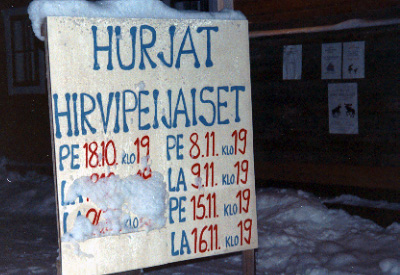 HURJAT
HIRVIPEIJAISET
PE 18.10. KLO 19
LA
LA
PE 8.11. KLO 19
LA 9.11. KLO 19
PE 15.11. KLO 19
LA 16.11. KLO 19